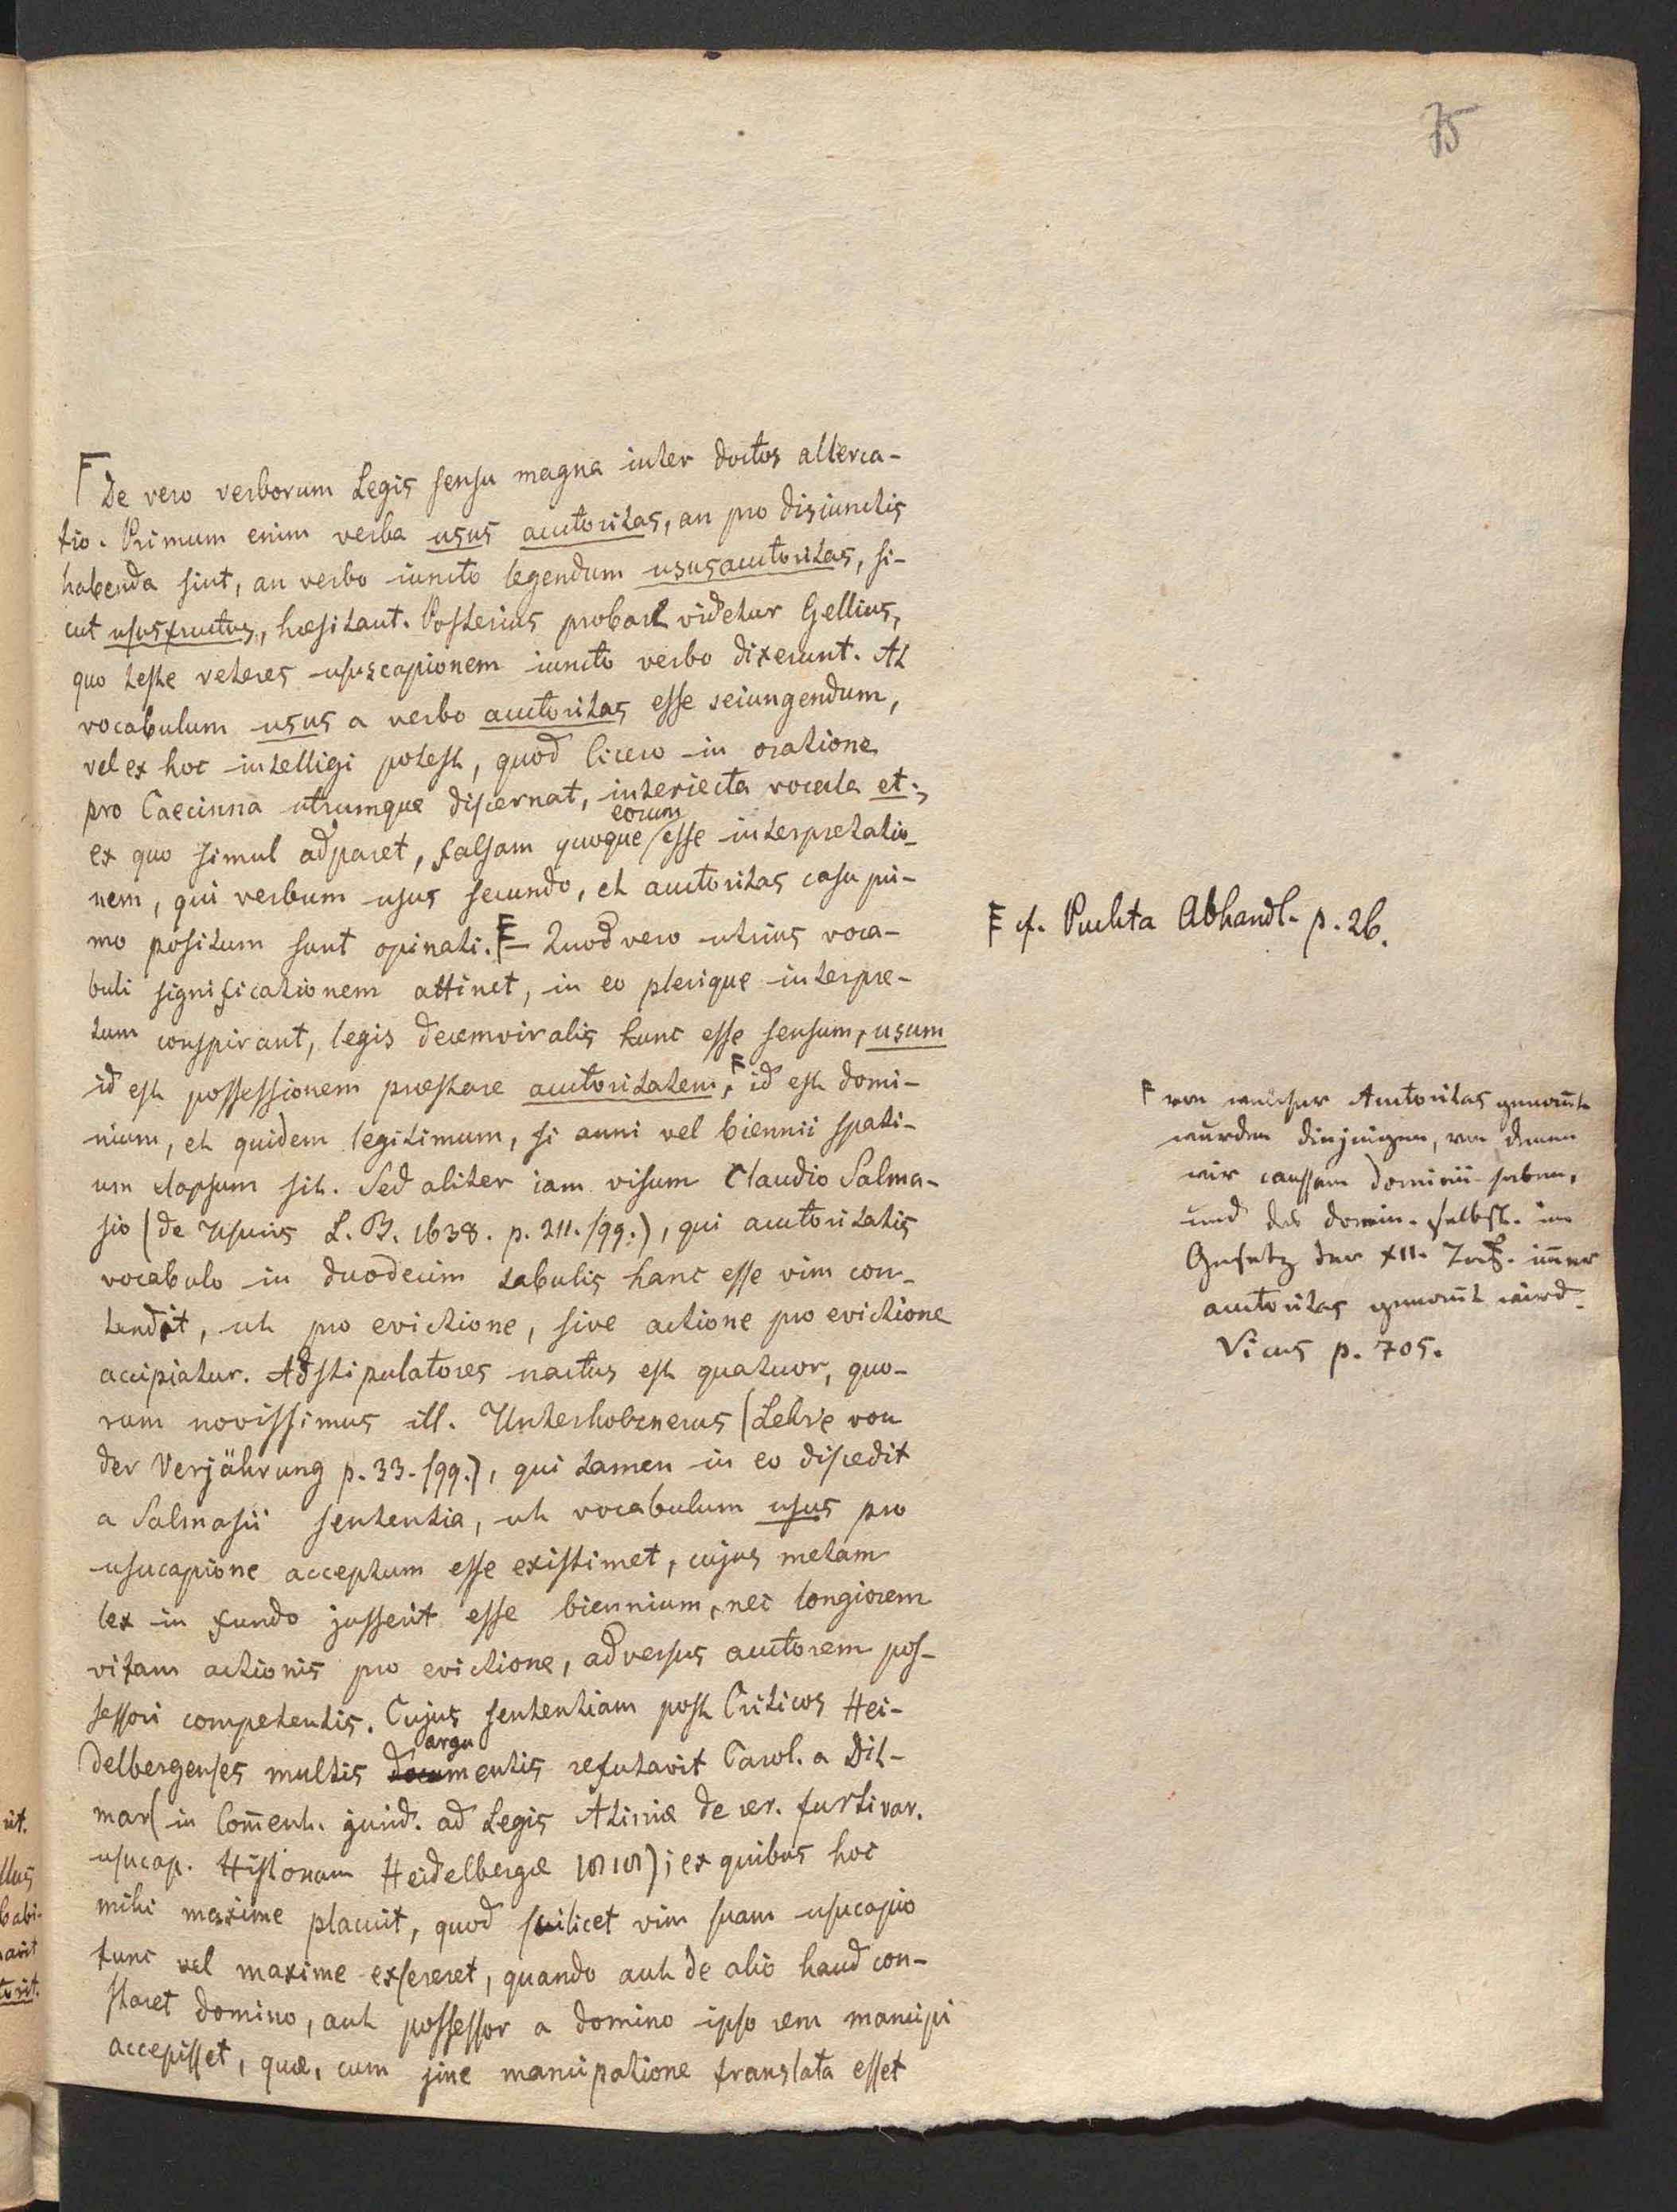 75
De vero verborum Legis sensu magna inter doctos alterca-
tio. Primum enim verba usus auctoritas, an pro disiunctis
habenda sint, an verbo iuncto legendum ususauctoritas, si-
cut ususfructus, hæsitant. Posterius probare videtur Gellius,
quo teste veteres ususcapionem iuncto verbo dixerunt. At
vocabulum usus a verbo auctoritas esse seiungendum,
vel ex hoc intelligi potest, quod Cicero in oratione
pro Caecinna utrumque discernat, interiecta vocula et;
ex quo simul adparet, falsam quoque eorum esse interpretatio-
nem, qui verbum usus secundo, et auctoritas casu pri-
mo positum sunt opinati. F— Quod vero utrius voca-
buli significationem attinet, in eo plerique interpre-
tum conspirant, legis decemviralis hunc esse sensum, usum
id est possessionem præstare auctoritatem, F id est domi-
nium, et quidem legitimum, si anni vel biennii spati-
um elapsum sit. Sed aliter iam visum Claudio Salma-
sio (de Usuris L. B. 1638. p. 211. sqq.), qui auctoritatis
vocabulo in duodecim tabulis hanc esse vim con-
tendit, ut pro evictione, sive actione pro evictione
accipiatur. Adstipulatores nactus est quatuor, quo-
rum novissimus ill. Unterholznerus (Lehre von
der Verjährung p. 33. sqq.), qui tamen in eo discedit
a Salmasii sententia, ut vocabulum usus pro
usucapione acceptum esse existimet, cujus metam
lex in fundo jusserit esse biennium, nec longiorem
vitam actionis pro evictione, adversus auctorem pos-
sessori competentis. Cujus sententiam post Criticos Hei-
delbergenses multis argumentis refutavit Carol. a Dit-
mar (in Com̄ent. jurid. ad Legis Atiniæ de rer. furtivar.
usucap. Historiam Heidelbergæ 1818); ex quibus hoc
mihi maxime placuit, quod scilicet vim suam usucapio
tunc vel maxime exsereret, quando aut de alio haud con-
staret domino, aut possessor a domino ipso rem mancipi
accepisset, quæ, cum sine mancipatione translata esset
F cf. Puchta Abhandl. p. 26.
F von welcher Auctoritas genan̄t
wurden diejenigen, von denen
wir caussam dominii haben,
und das domin. selbst im
Gesetz der XII. Taf. im̄er
auctoritas genan̄t wird.
Vicus p. 705.